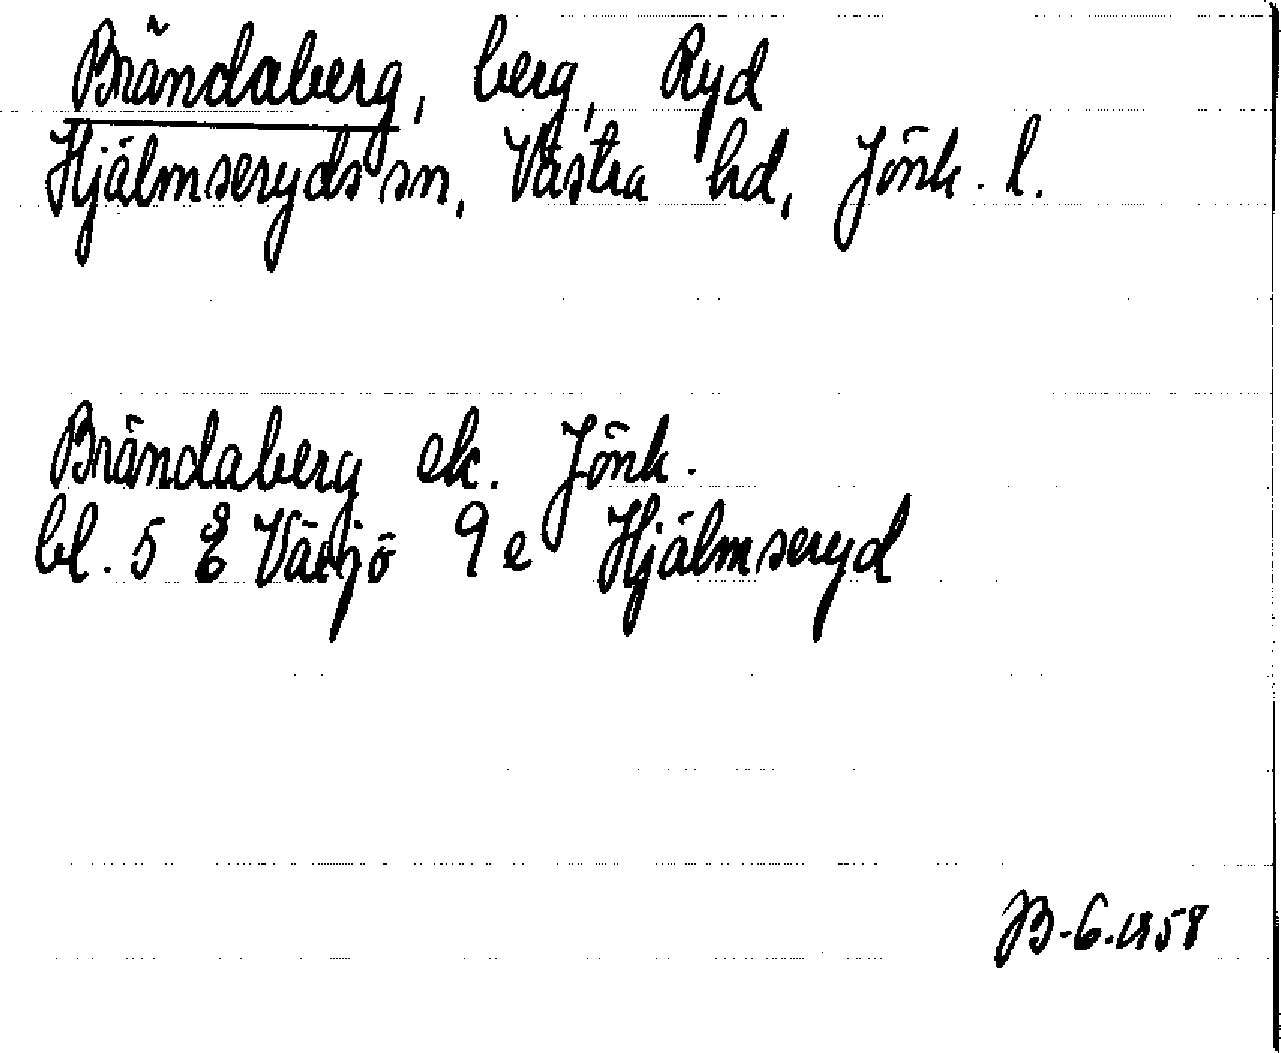 Brändaberg, berg, Ryd
Hjälmseryds sn, Västra hd, Jönk. l.
Brändaberg ek. Jönk.
bl. 5 E Växjö 9 e Hjälmseryd
JB-6.1958